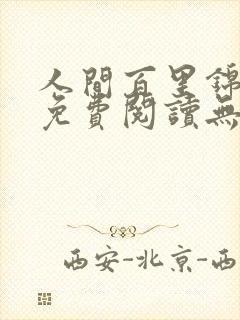 人間百里錦
免費閱讀無
西安-北京-西